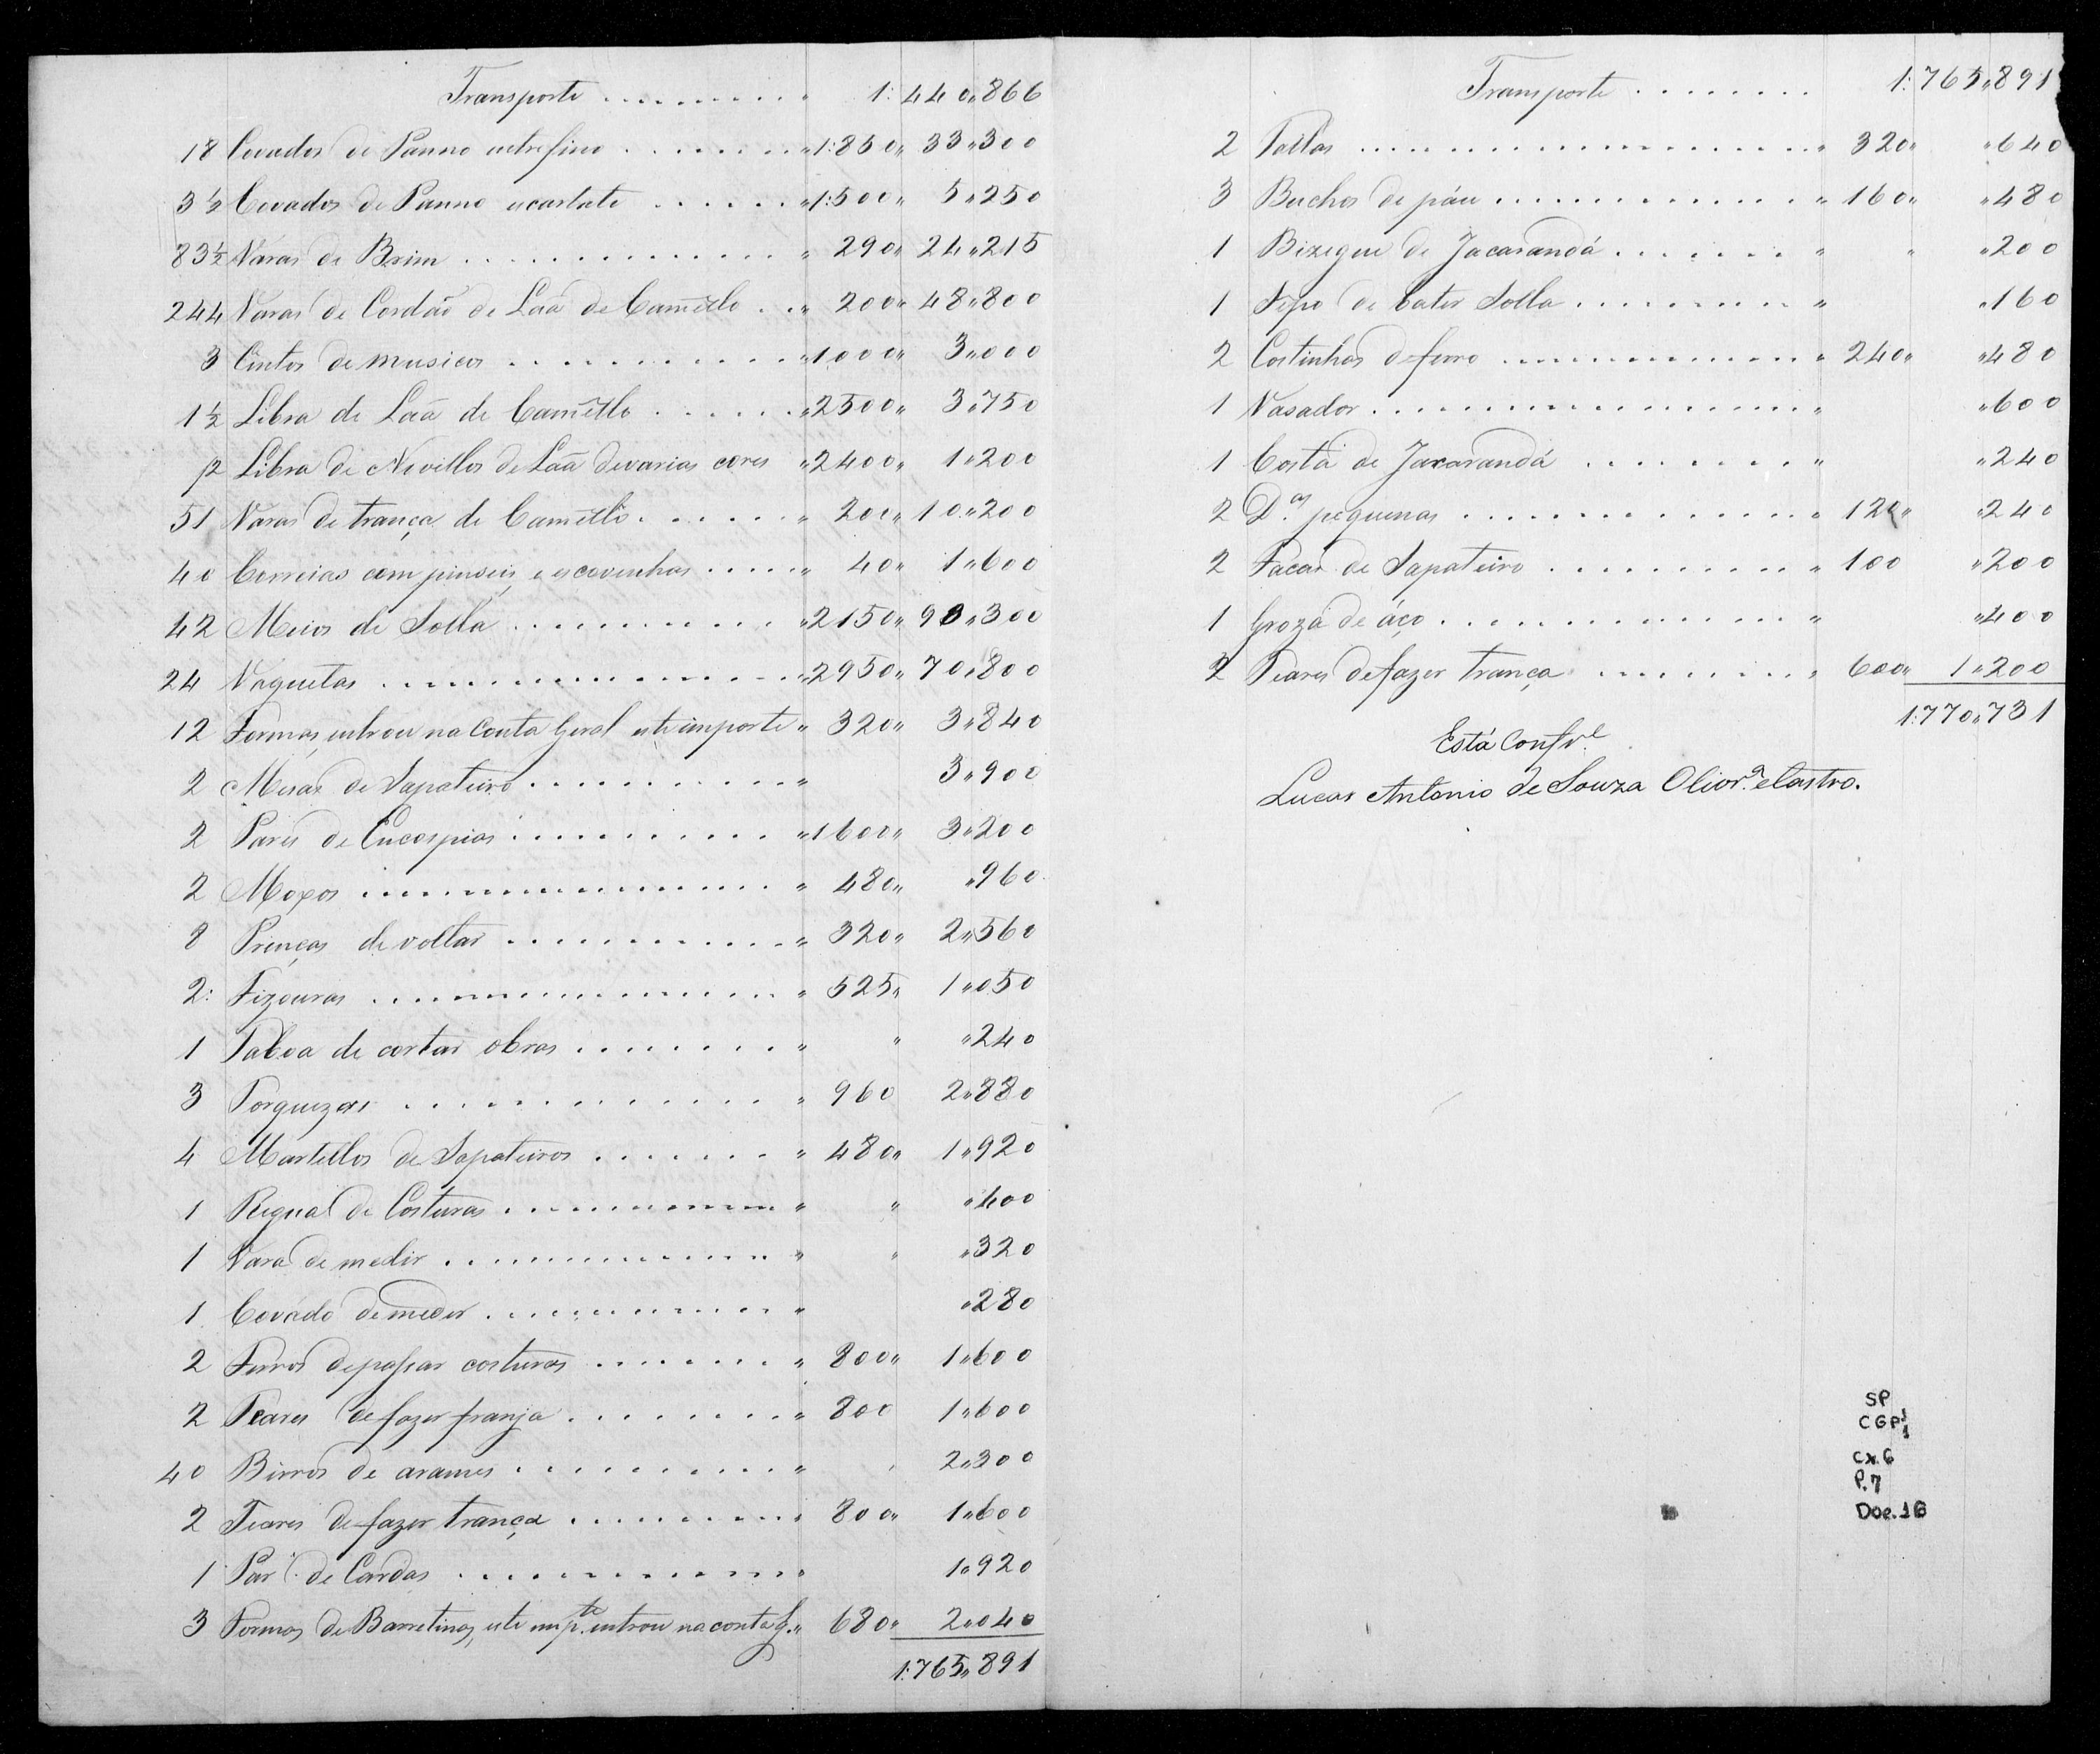 Transporte .......... 1:440"866
18 Covados de Panno entrefino ........ "1:850" 33"300
3½ Covados de Panno escarlate ...... "1:500" 5"250
83½ Varas de Brim .............. " 290" 24"215
244 Varas de Cordão de Laã de Camêllo ... " 200" 48"800
3 Cintos de musicos ........... "1000" 3"000
1½ Libra de Laã de Camêllo ...... "2500" 3"750
½ Libra de Novellos de Laã de varias cores "2400" 1"200
51 Varas de trança de Camêllo ....... " 200" 10"200
40 Correias com pinseis, e escovinhas ..... " 40" 1"600
42 Meios de Solla ............ "2150" 90"300
24 Vaquetas ................. "2950" 70"800
12 Formas, entrou na Conta Geral este importe " 320" 3"840
2 Mesas de Sapateiro ............ " 3"900
2 Pares de Encospias ............ "1600" 3"200
2 Moxos ................. " 480" "960
8 Prenças de voltar ............ " 320" 2"560
2: Tizouras ................. " 525" 1"050
1 Taboa de cortar obras ........ " " "240
3 Torquezas .............. " 960 2"880
4 Martellos de Sapateiros ........ " 480" 1"920
1 Regua de Costuras ............ " " "400
1 Vara de medir ............... " " "320
1 Covádo de medir ............. " "280
2 Ferros de passar costuras ........ " 800" 1"600
2 Teares de fazer franja ......... " 800 1"600
40 Birros de arames ........... " 2"300
2 Teares de fazer trança ......... " 800" 1"600
1 Par de Cardas ............. " 1"920
3 Formas de Barretinas, este imp.te entrou na conta g. " 680" 2"040
1:765"891
Transporte ........ 1:765"891
2 Tallas .................... " 320" "640
3 Buchos de páu ............... " 160" "480
1 Bizegre de Jacarandá ....... " " "200
1 Sepo de bater Solla .......... " "160
2 Costinhas de ferro .............. " 240" "480
1 Vasador ................... " "600
1 Costa de Jacarandá ......... " "240
2 D.as pequenas .............. " 120" "240
2 Facas de Sapateiro .......... " 100 "200
1 Groza de áço .............. " "400
2 Teares de fazer trança ......... " 600" 1"200
1:770"731
Está Confr.e
Lucas Antonio de Souza Olivr.a e Castro.
SP
CGP1
1
cx.6
P.7
Doc.16